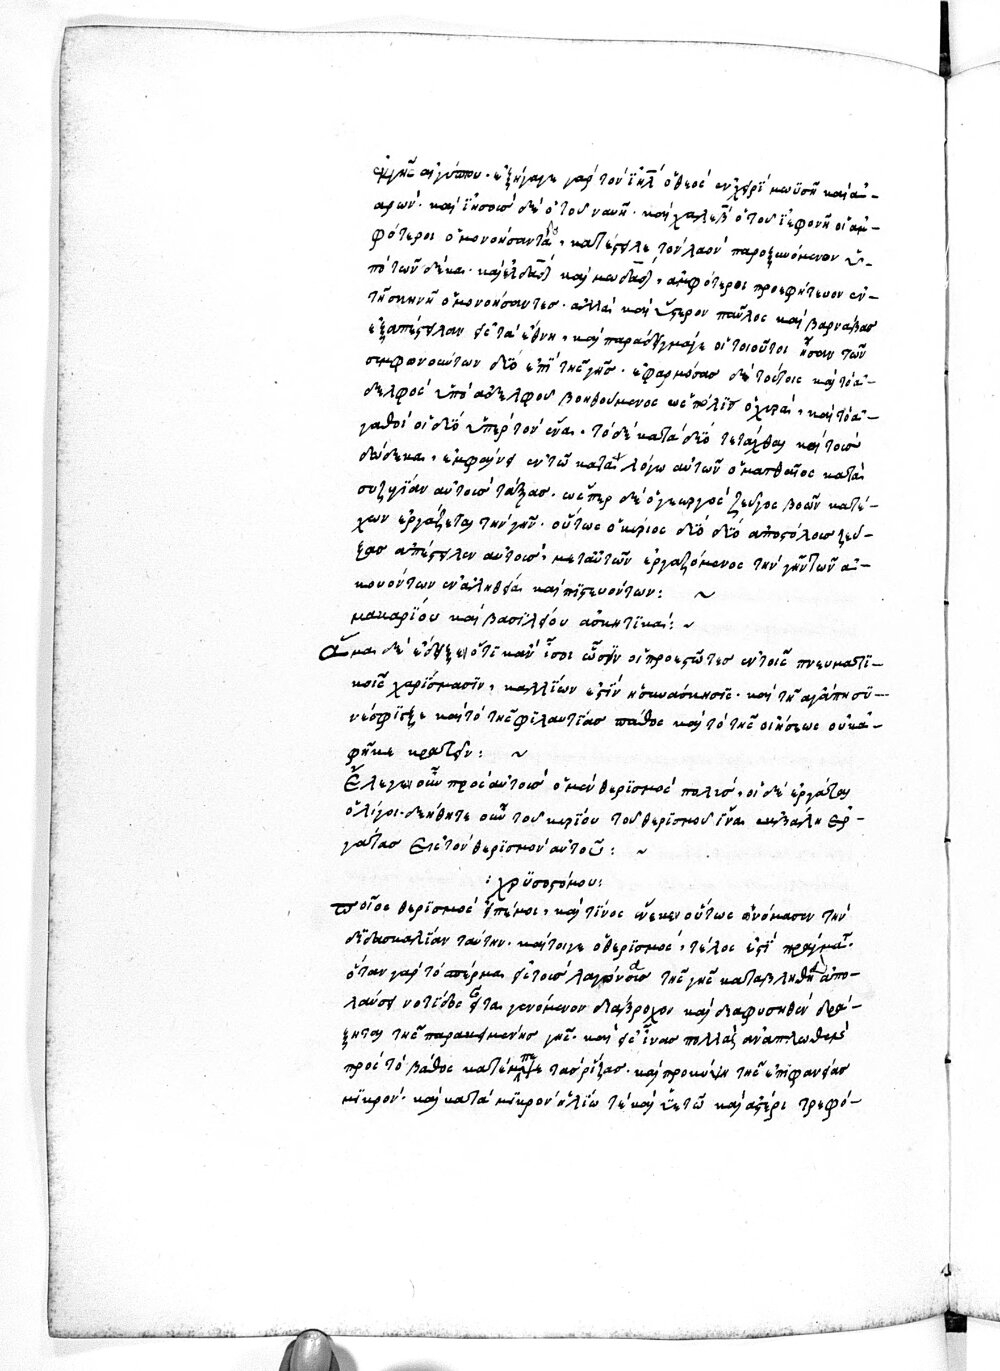 ἐκ γῆς αἰγύπτου· ἐξήγαγε γὰρ τὸν ἰη̅λ̅ ὁ θεὸς ἐν χειρὶ μωϋσῆ καὶ ἀ-
αρών· καὶ ἰησοῦς δὲ ὁ τοῦ ναυῆ· καὶ χαλεβ ὁ τοῦ ἰεφονῆ οἱ ἀμ-
φότεροι ὁμονοήσαντες, κατέστειλε τὸν λαὸν παροξυνόμενον ὑ-
πὸ τῶν δέκα· καὶ ἐλδαδ καὶ μωδαδ, ἀμφότεροι προεφήτευον ἐν
τῇ σκηνῇ ὁμονοήσαντες· ἀλλὰ καὶ ὕστερον παῦλος καὶ βαρνάβας
ἐξαπέστειλαν εἰς τὰ ἔθνη, καὶ παράδειγμα οἱ τοιοῦτοι ἦσαν τῶν
συμφωνούντων δύο ἐπὶ τῆς γῆς· ἐφαρμόσας δὲ τούτοις καὶ τὸ ἀ-
δελφὸς ὑπὸ ἀδελφοῦ βοηθούμενος ὡς πόλις ὀχυρά, καὶ τὸ ἀ-
γαθοὶ οἱ δύο ὑπὲρ τὸν ἕνα· τὸ δὲ κατὰ δύο τετάχθαι καὶ τοὺς
δώδεκα, ἐμφαίνει ἐν τῷ καταλόγῳ αὐτῶν ὁ ματθαῖος κατὰ
συζυγίαν αὐτοὺς τάξας· ὥσπερ δὲ ὁ γεωργὸς ζεῦγος βοῶν κατέ-
χων ἐργάζεται τὴν γῆν· οὕτως ὁ κύριος δύο δύο ἀποστόλους ζεύ-
ξας ἀπέστειλεν αὐτούς, μετ' αὐτῶν ἐργαζόμενος τὴν γῆν τῶν ἀ-
κουόντων ἐν ἀληθείᾳ καὶ πιστευόντων: ~
μακαρίου καὶ βασιλείου ἀσκητικά: ~
ἅμα δὲ ἔδειξε ὅτι κἂν ἴσοι ὦσιν οἱ προεστῶτες ἐν τοῖς πνευματι-
κοῖς χαρίσμασιν, καλλίων ἐστὶν ἡ συνάσκησις· καὶ τῇ ἀγάπῃ συ-
νέσφιγξε καὶ τὸ τῆς φιλαυτίας πάθος καὶ τὸ τῆς οἰήσεως οὐκ ἀ-
φῆκε κρατεῖν: ~
ἔλεγε οὖν πρὸς αὐτούς ὁ μὲν θερισμὸς πολύς, οἱ δὲ ἐργάται
ὀλίγοι· δεήθητε οὖν τοῦ κυρίου τοῦ θερισμοῦ ἵνα ἐκβάλῃ ἐρ-
γάτας εἰς τὸν θερισμὸν αὐτοῦ: ~
: χρυσοστόμου:
ποῖος θερισμὸς εἰπέ μοι, καὶ τίνος ἕνεκεν οὕτως ὠνόμασεν τὴν
διδασκαλίαν ταύτην· καίτοιγε ὁ θερισμὸς, τέλος ἐστὶ πράγμα·
ὅταν γὰρ τὸ σπέρμα εἰς τοὺς λαγόνας τῆς γῆς καταβληθὲν ἀπο-
λαύσῃ νοτίδος εἶτα γενόμενον διάβροχον καὶ διαφυσηθὲν δρά-
ξηται τῆς παρακειμένης γῆς· καὶ εἰς ἶνας πολλὰς ἀναπλωθὲν
πρὸς τὸ βάθος καταπέμπῃ τὰς ῥίζας· καὶ προκύψῃ τῆς ἐπιφανείας
μικρὸν· καὶ κατὰ μικρὸν ἡλίῳ τε καὶ ὑετῷ καὶ ἀέρι τρεφό-